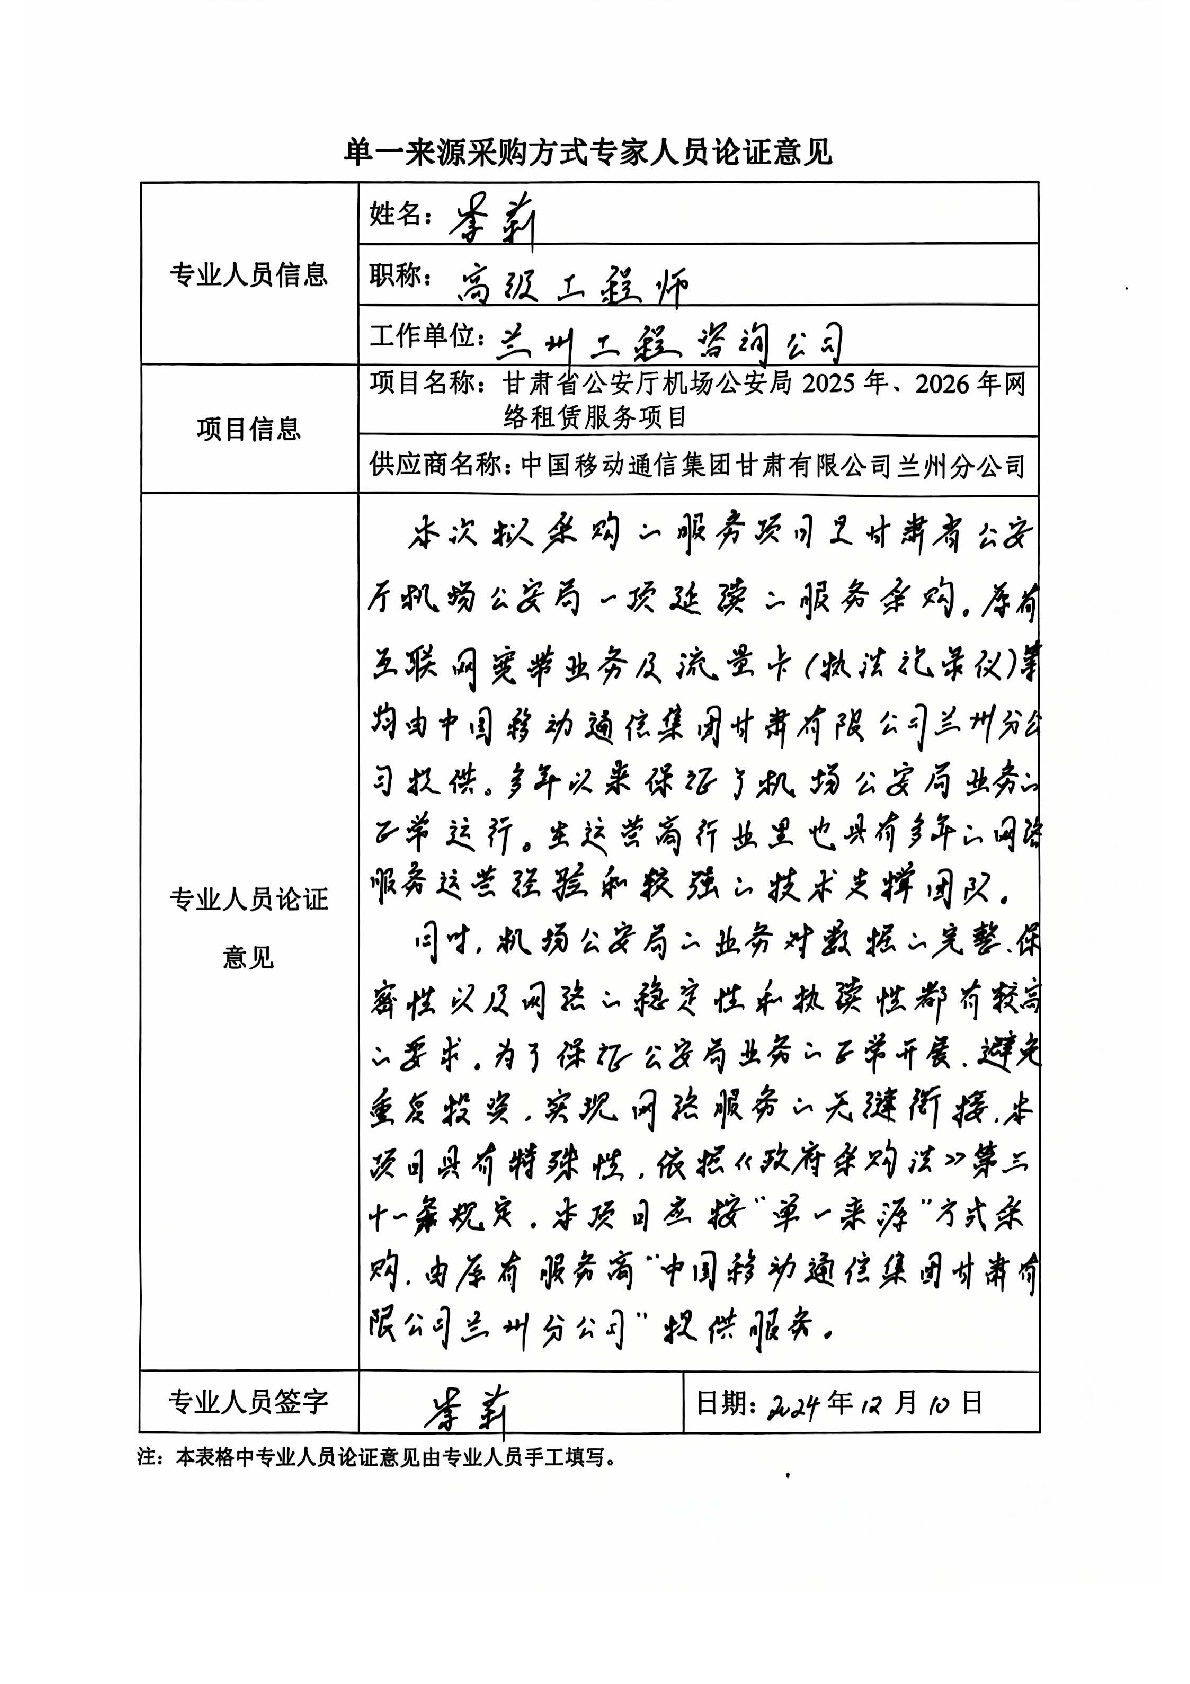 单一来源采购方式专家人员论证意见
专业人员信息
姓名：李莉
职称：高级工程师
工作单位：兰州工程咨询公司
项目信息
项目名称：甘肃省公安厅机场公安局 2025 年、2026 年网
络租赁服务项目
供应商名称：中国移动通信集团甘肃有限公司兰州分公司
专业人员论证
意见
本次拟采购的服务项目是甘肃省公安
厅机场公安局一项延续的服务采购。原有
互联网宽带业务及流量卡（执法记录仪）等
均由中国移动通信集团甘肃有限公司兰州分公
司提供。多年以来保证了机场公安局业务的
正常运行。在运营商行业里也具有多年的网络
服务运营经验和较强的技术支撑团队。
同时，机场公安局的业务对数据的完整、保
密性以及网络的稳定性和持续性都有较高
的要求。为了保证公安局业务的正常开展、避免
重复投资，实现网络服务的无缝衔接，本
项目具有特殊性，依据《政府采购法》第三
十一条规定，本项目应按“单一来源”方式采
购，由原有服务商“中国移动通信集团甘肃有
限公司兰州分公司”提供服务。
专业人员签字
李莉
日期：2024年12月10日
注：本表格中专业人员论证意见由专业人员手工填写。